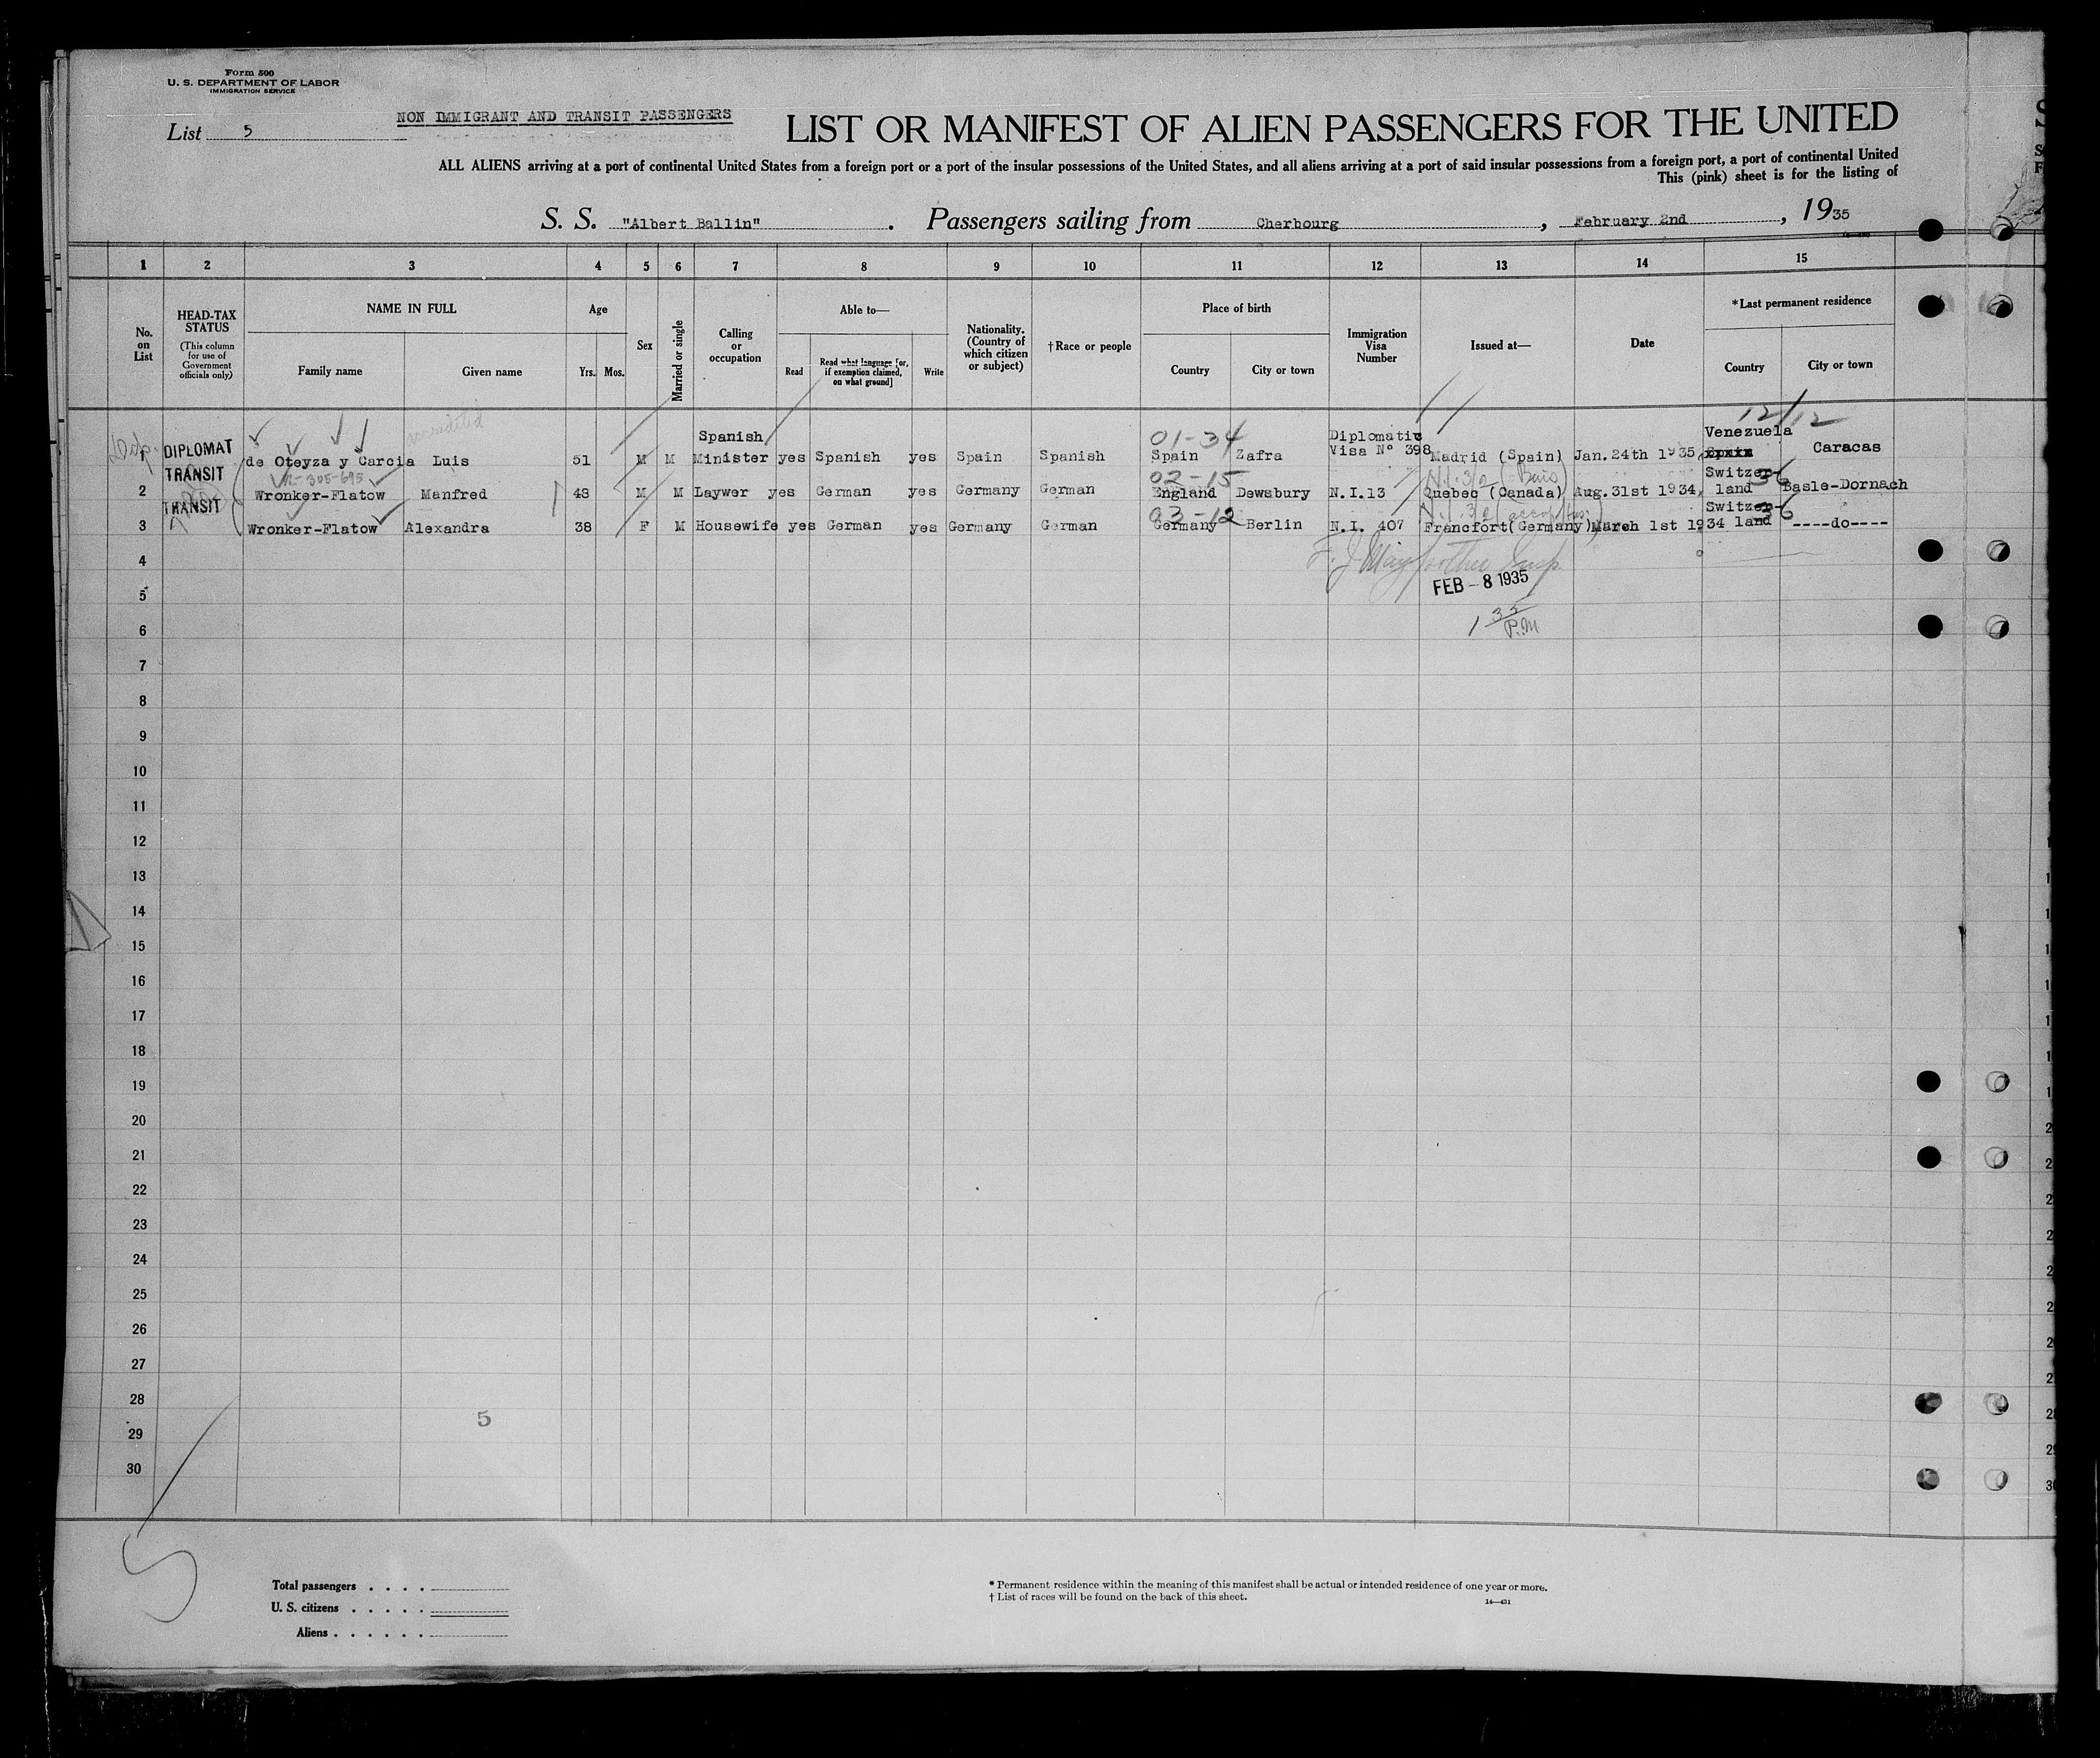 Form 500
U. S. DEPARTMENT OF LABOR
IMMIGRATION SERVICE
List 5
NON IMMIGRANT AND TRANSIT PASSENGERS
LIST OR MANIFEST OF ALIEN PASSENGERS FOR THE UNITED
ALL ALIENS arriving at a port of continental United States from a foreign port or a port of the insular possessions of the United States, and all aliens arriving at a port of said insular possessions from a foreign port, a port of continental United
This (pink) sheet is for the listing of
S. S. "Albert Ballin". Passengers sailing from Cherbourg, February 2nd, 1935
1 2 3 4 5 6 7 8 9 10 11 12 13 14 15
No. on List
HEAD-TAX STATUS
(This column for use of Government officials only)
NAME IN FULL
Family name Given name
Age
Yrs. Mos.
Sex
Married or single
Calling or occupation
Able to—
Read
Read what language [or, if exemption claimed, on what ground]
Write
Nationality. (Country of which citizen or subject)
†Race or people
Place of birth
Country City or town
Immigration Visa Number
Issued at—
Date
*Last permanent residence
Country City or town
12/12
1 DIPLOMAT de Oteyza y Garcia Luis 51 M M Spanish Minister yes Spanish yes Spain Spanish 01-34 Spain Zafra Diplomatic Visa Nº 398 Madrid (Spain) Jan.24th 1935, Venezuela Caracas
305-695
2 TRANSIT Wronker-Flatow Manfred 48 M M Laywer yes German yes Germany German 02-15 England Dewsbury N.I.13 Quebec (Canada) Aug.31st 1934, Switzer-land 36 Basle-Dornach
3 TRANSIT Wronker-Flatow Alexandra 38 F M Housewife yes German yes Germany German 03-12 Germany Berlin N.I. 407 Francfort(Germany) March 1st 1934 Switzer-land 36 ----do----
4
FEB - 8 1935
5
1 35 P.M
6
7
8
9
10
11
12
13
14
15
16
17
18
19
20
21
22
23
24
25
26
27
28
5
29
30
5
Total passengers . . . .
U. S. citizens . . . . .
Aliens . . . . . .
* Permanent residence within the meaning of this manifest shall be actual or intended residence of one year or more.
† List of races will be found on the back of this sheet.
14—431